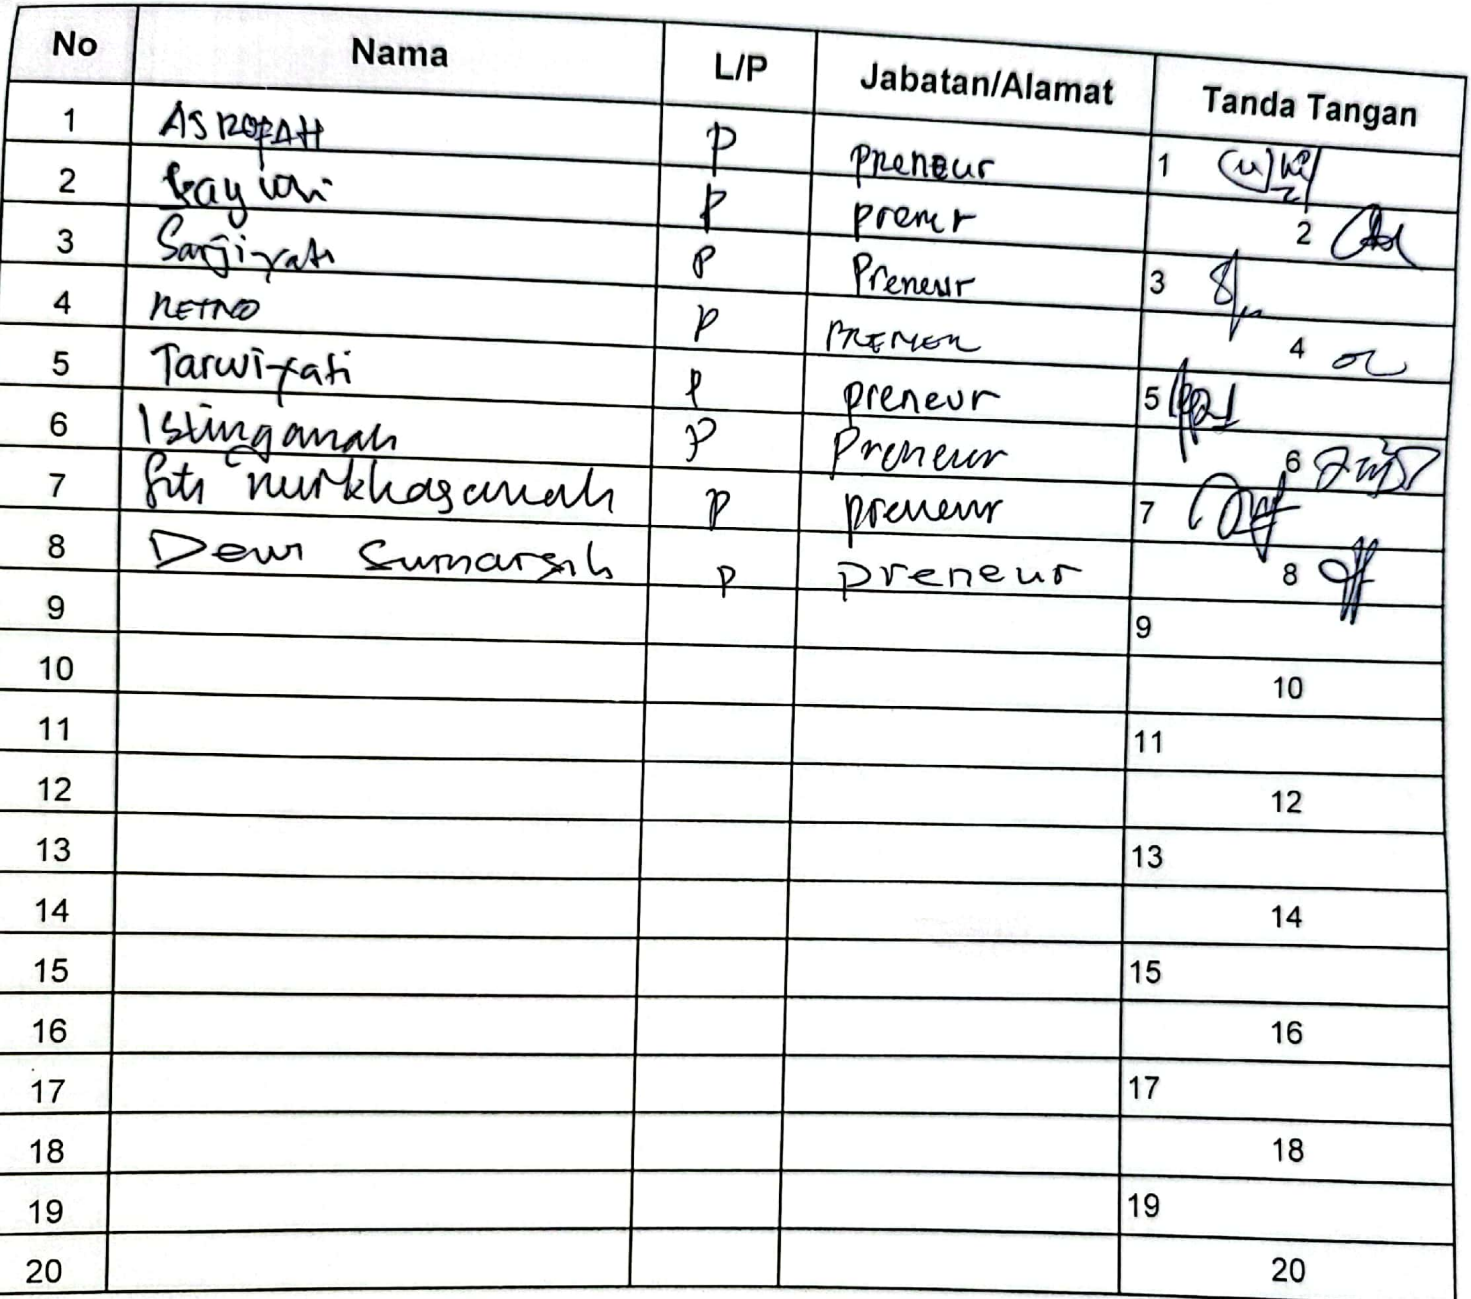 No Nama L/P Jabatan/Alamat Tanda Tangan
1 ASROFAH P preneur 1
2 P prener 2
3 Sarjiyati P Preneur 3
4 RETNO P PRENER 4
5 Tarwiyati P preneur 5
6 Istinganah P Preneur 6
7 Siti nurkhasanah P preneur 7
8 Dewi Sumarsih P preneur 8
9 9
10 10
11 11
12 12
13 13
14 14
15 15
16 16
17 17
18 18
19 19
20 20